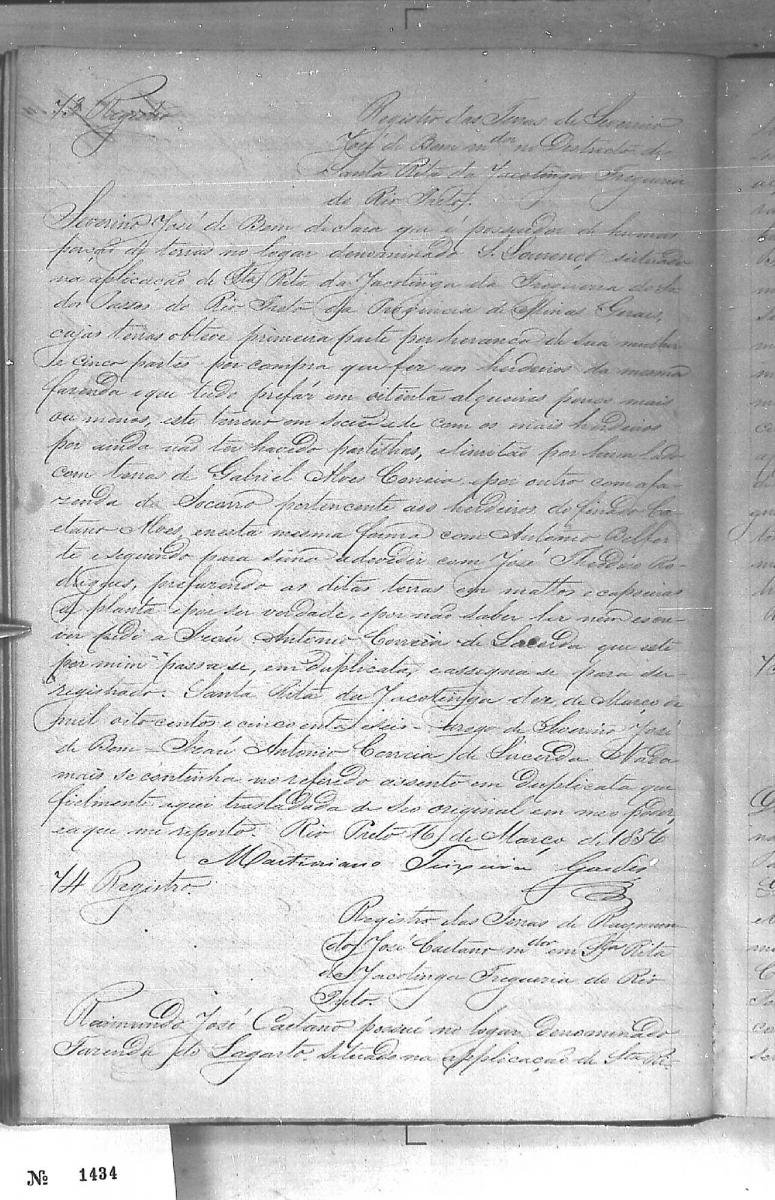 73 Registro
Registro das Terras de Severino
José de Bem mdor no Destricto de
Santa Rita da Jacotinga Freguezia
do Rio Preto.
Severino José de Bem declara que é possuidor de humas
porção de terras no logar denominado S. Lourenço, situado
na aplicação de Sta Rita da Jacotinga da Freguezia do Sr
dos Passos do Rio Preto da Provincia de Minas Gerais,
cujas terras obteve primeira parte por herança de sua mulher
e cinco partes por compra que fez aos herdeiros da mesma
fazenda e que tudo prefáz em oitenta alqueires pouco mais
ou menos, este terreno em sociedade com os mais herdeiros
por ainda não ter havido partilhas, e limitão por hum lado
com terras de Gabriel Alves Correia e por outro com a fa-
zenda do Socorro pertencente aos herdeiros do finado Ca-
etano Alves, e nesta mesma forma com Antonio Belfor
te e seguindo para sima a devedir com José Theodoro Ro-
drigues, prefazendo as ditas terras em mattos e capoeiras
de planta e por ser verdade, e por não saber ler nem escre-
ver pedi a Antonio Correia de Lacerda que este
por mim passa-se, em duplicata, e assigna-se para ser
registrado. Santa Rita da Jacotinga dez de Março de
mil oito centos e cincoenta e seis - arogo de Severino José
de Bem - Antonio Correia de Lacerda Nada
mais se continha no referido assento em duplicata que
fielmente aqui trasladada de seo original em meo poder,
ea que me reporto. Rio Preto 16 de Março de 1856
Teixeira Guedes
74 Registro.
Registro das Terras de Raymun
do José Caetano mdor em Sta Rita
de Jacotinga Freguezia do Rio
Preto.
Raimundo José Caetano possue no logar denominado
Fazenda do Lagarto situado na applicação de Sta Ri-
Nº 1434